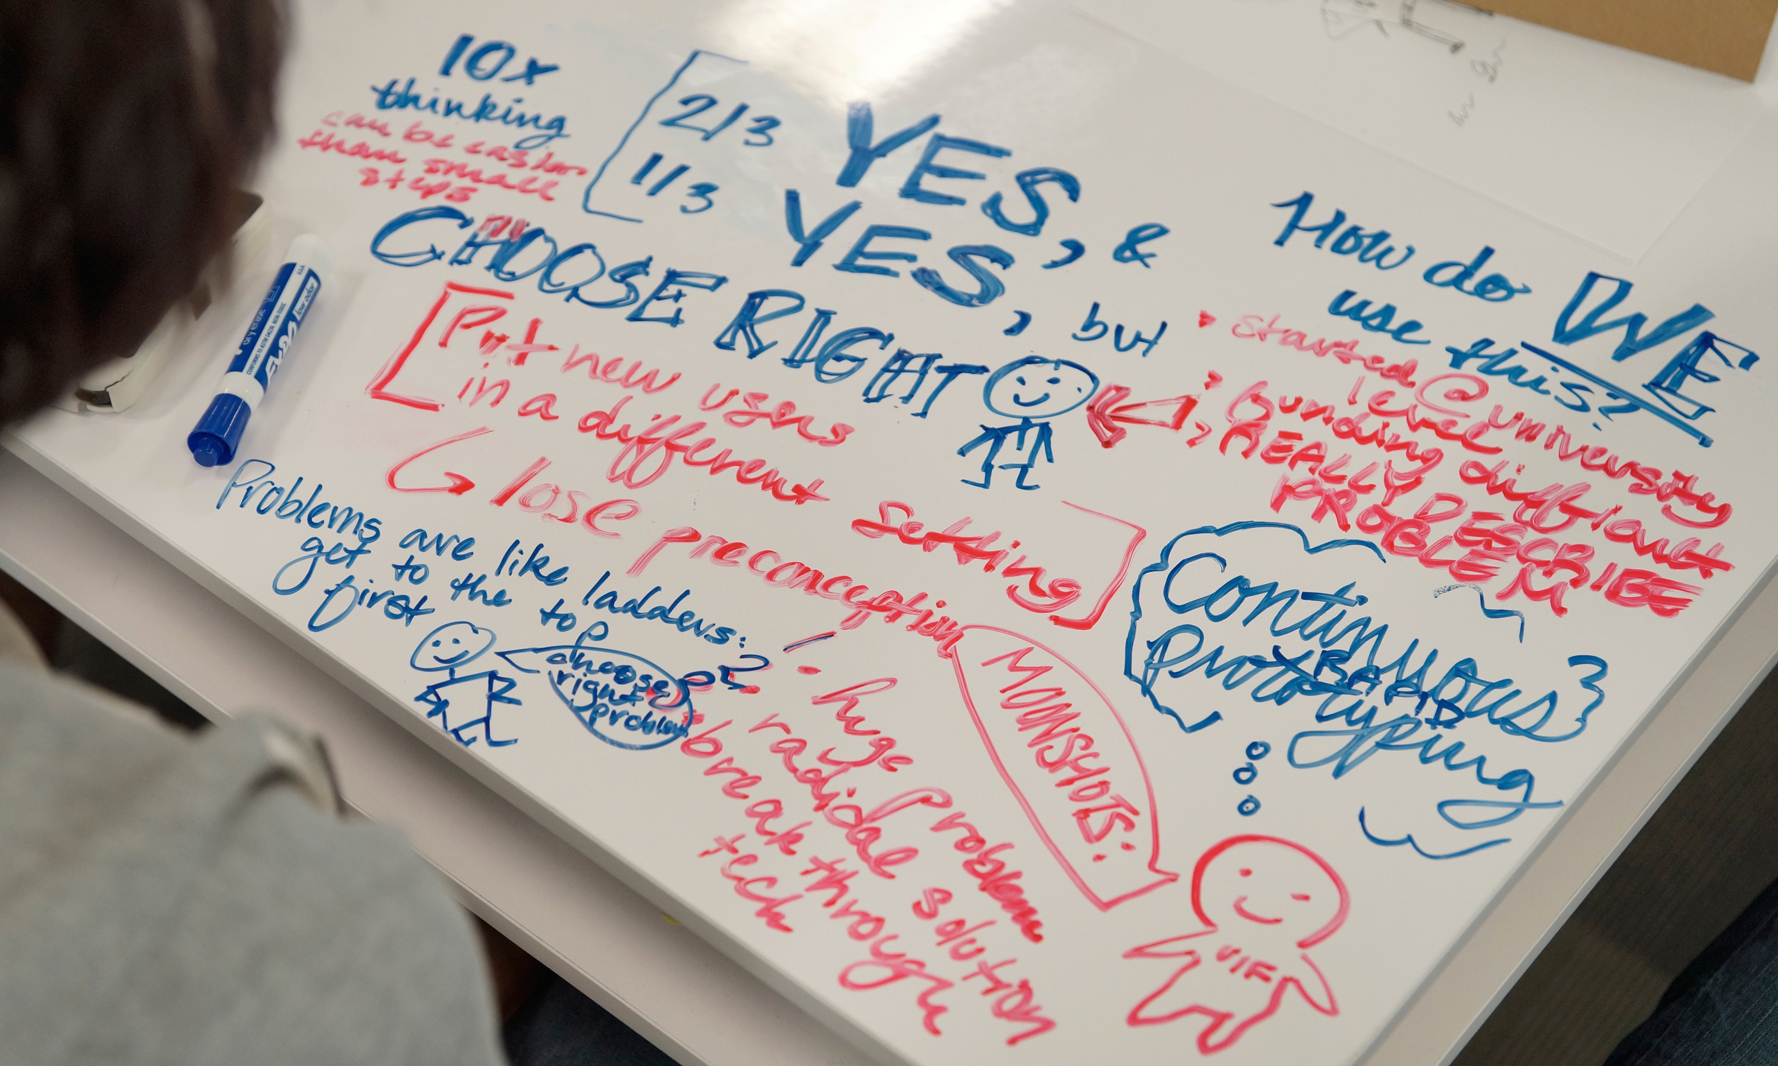 10x
thinking
can be easier
than small
steps
2/3 YES, &
1/3 YES, but
CHOOSE RIGHT
Put new users
in a different setting
lose preconception
Problems are like ladders:
get to the top
first
choose
right
problem
How do WE
use this?
started @ university
level
funding difficult
REALLY DESCRIBE
PROBLEM
Continuous
RAPID
prototyping
MOONSHOTS:
huge problem
radical solution
breakthrough
tech
EXPO